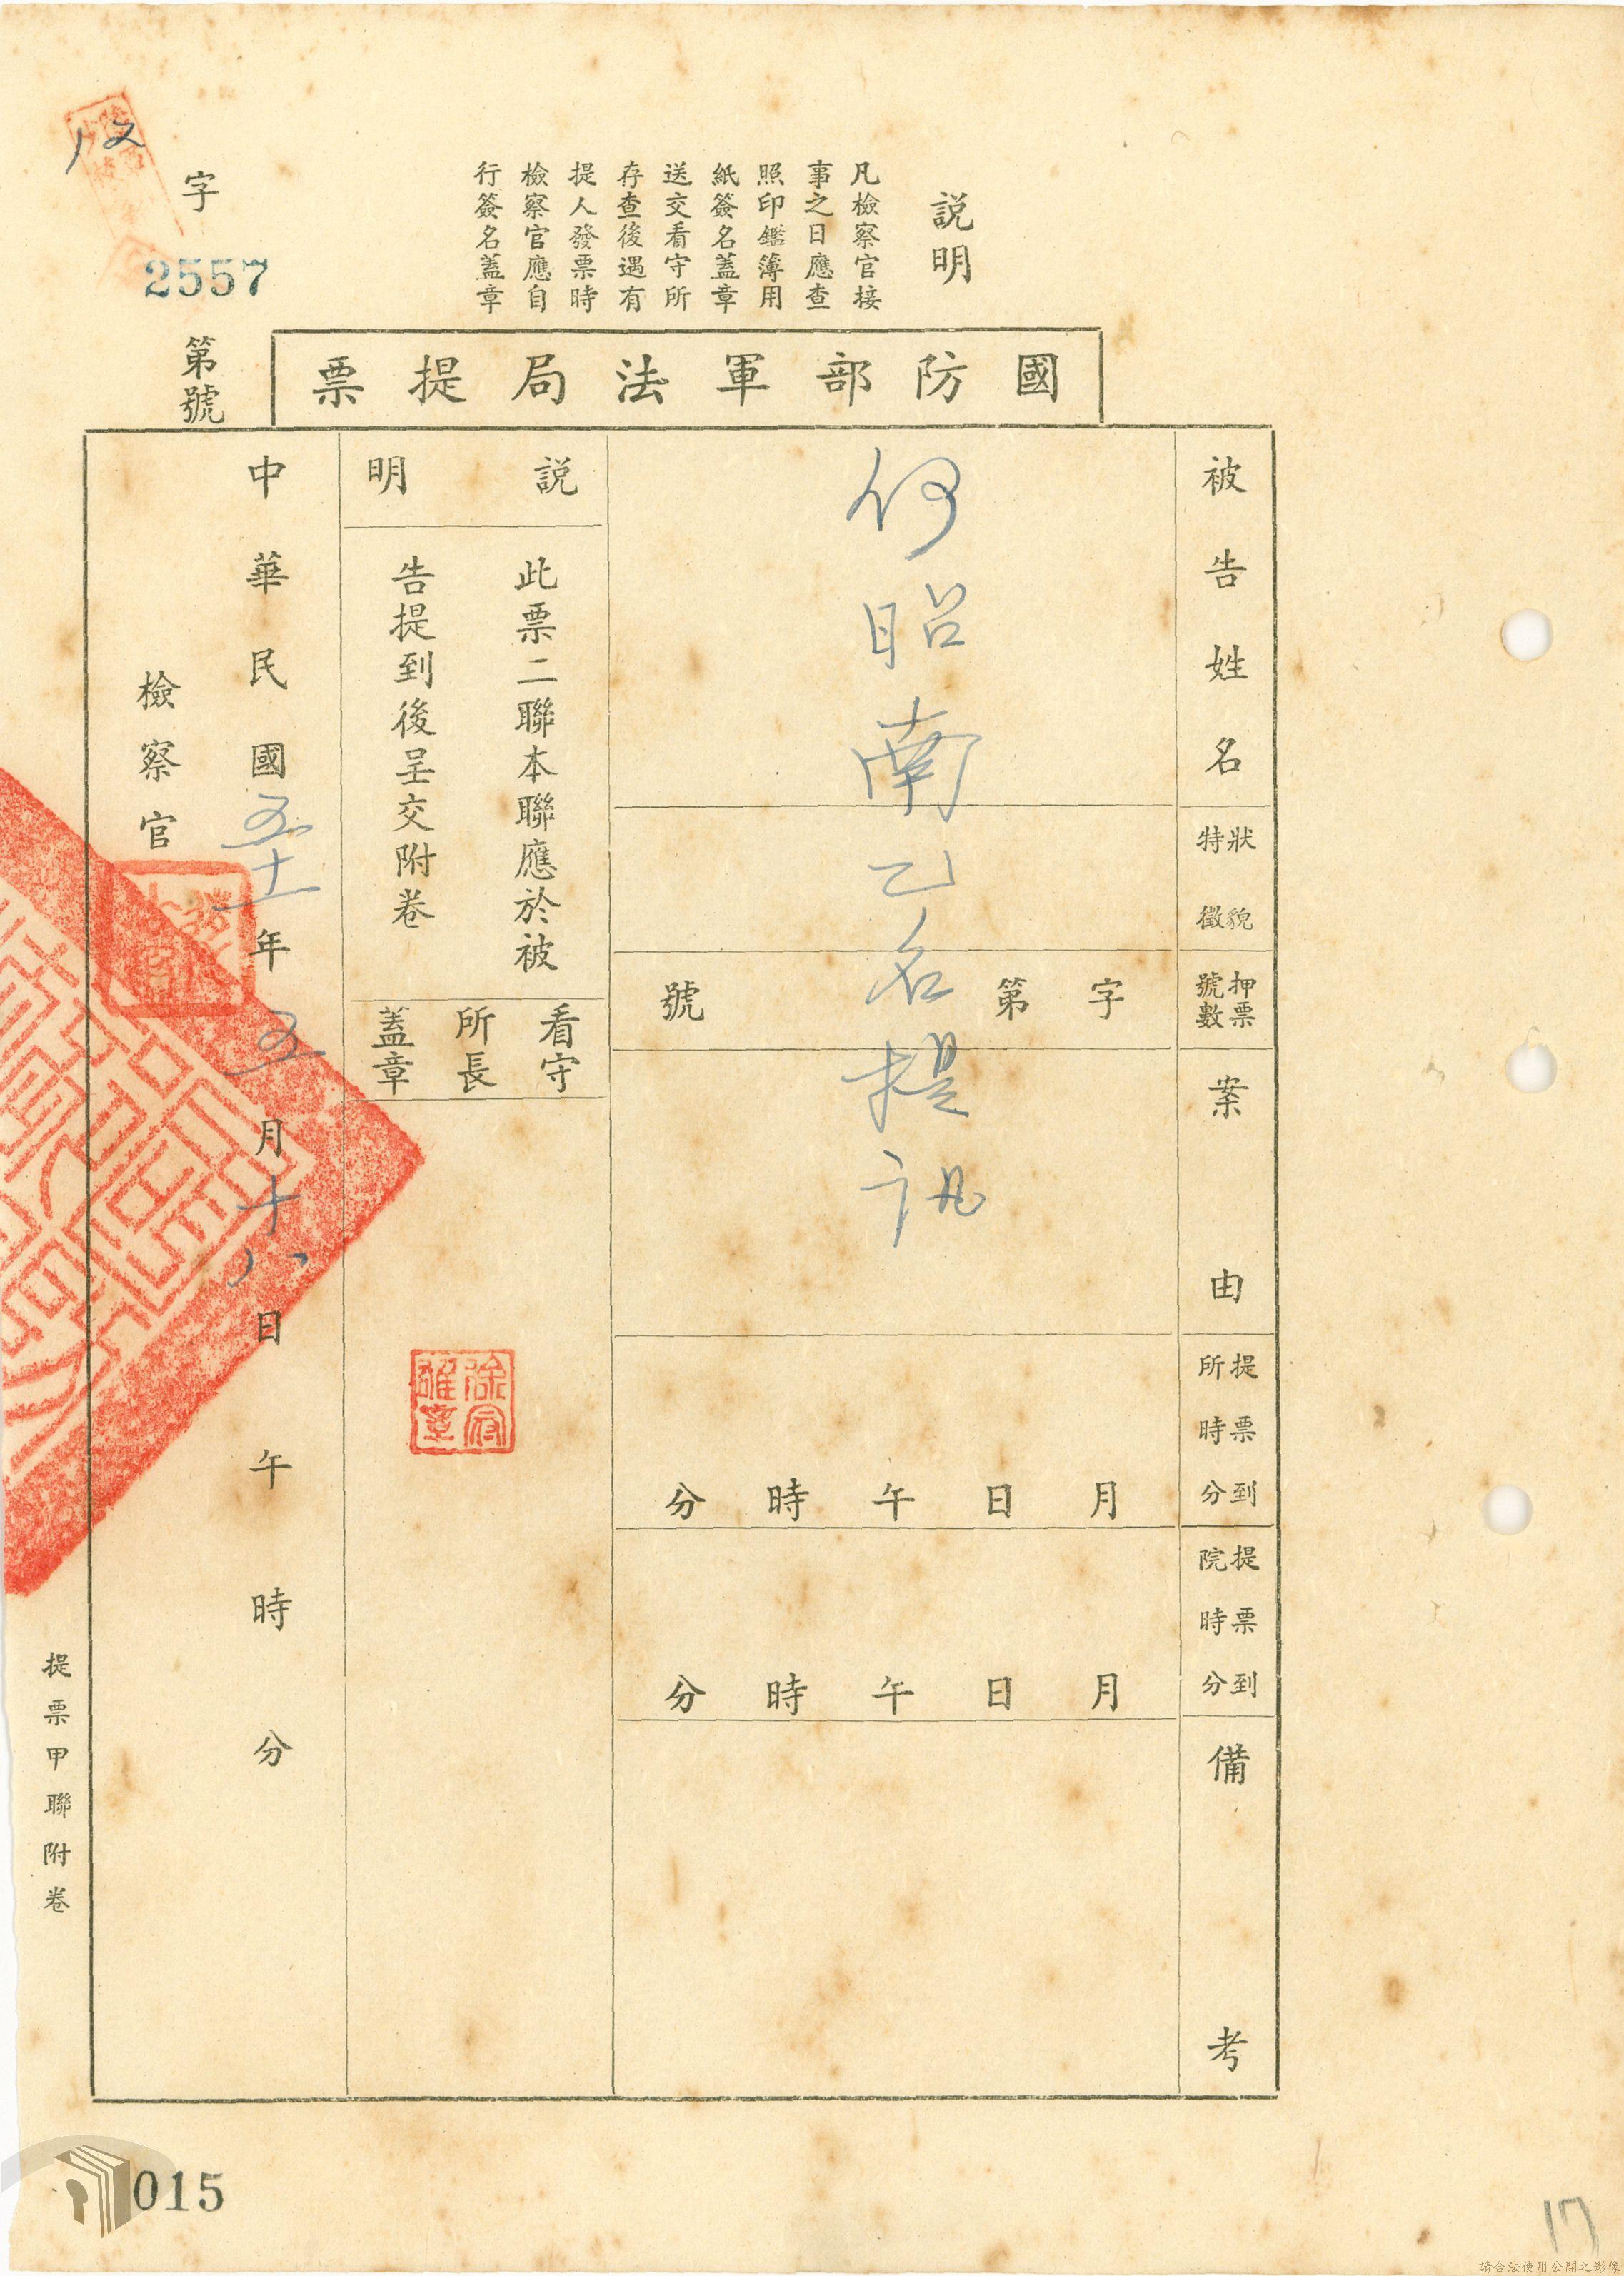 説明
凡檢察官接
事之日應查
照印鑑簿用
紙簽名蓋章
送交看守所
存查後遇有
提人發票時
檢察官應自
行簽名蓋章
字
2557
第號
國防部軍法局提票
被告姓名
何昭南乙名提訊
特徵狀貌
押票號數
字 第 號
案由
提票到所時分
月 日 午 時 分
提票到院時分
月 日 午 時 分
備考
説明
此票二聯本聯應於被
告提到後呈交附卷
看守
所長
蓋章
中華民國五十一年五月十八日 午 時 分
檢察官
提票甲聯附卷
015
17
請合法使用公開之影像